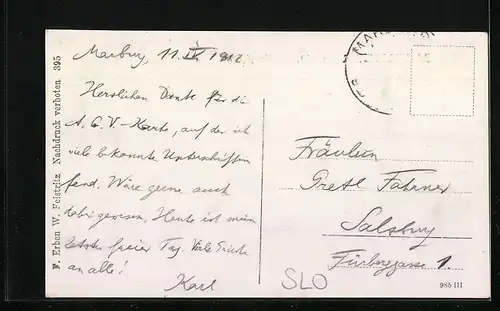 Marburg, 11. IX. 1912
Herzlichen Dank für die
A.G.V.-Karte, auf der ich
viele bekannte Unterschriften
fand. Wäre gerne auch
dabei gewesen. Heute ist mein
letzter freier Tag. Viele Grüße
an alle!
Karl
F. Erben W. Feistritz Nachdruck verboten 395
MAR
Fräulein
Gretl Fahrner
Salzburg
1.
SLO
985 III